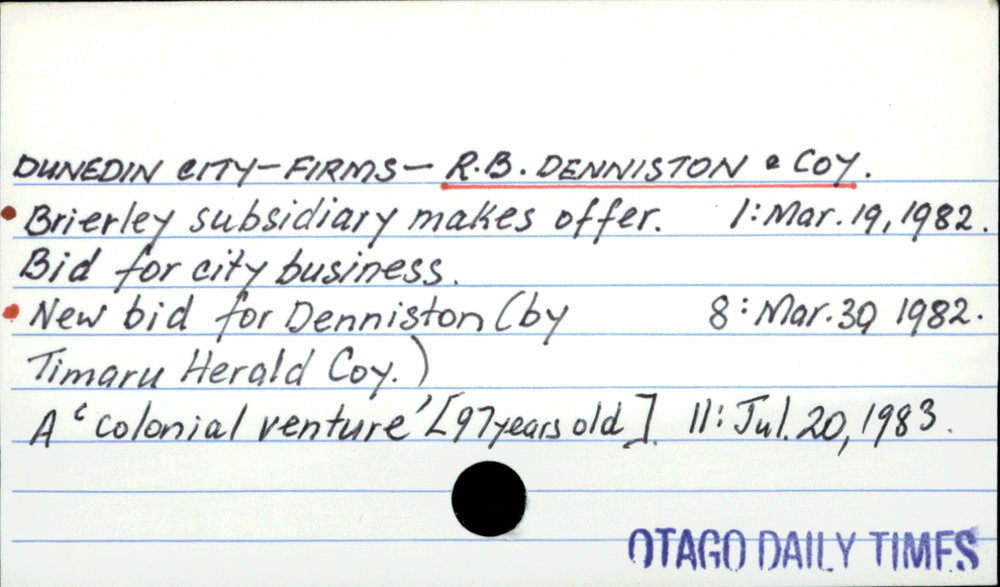 DUNEDIN CITY-FIRMS- R.B. DENNISTON & COY.
Brierley subsidiary makes offer. 1: Mar. 19, 1982.
Bid for city business.
New bid for Denniston (by 8: Mar. 30 1982.
Timaru Herald Coy.)
A 'colonial venture' [97 years old]. 11: Jul. 20, 1983.
OTAGO DAILY TIMES